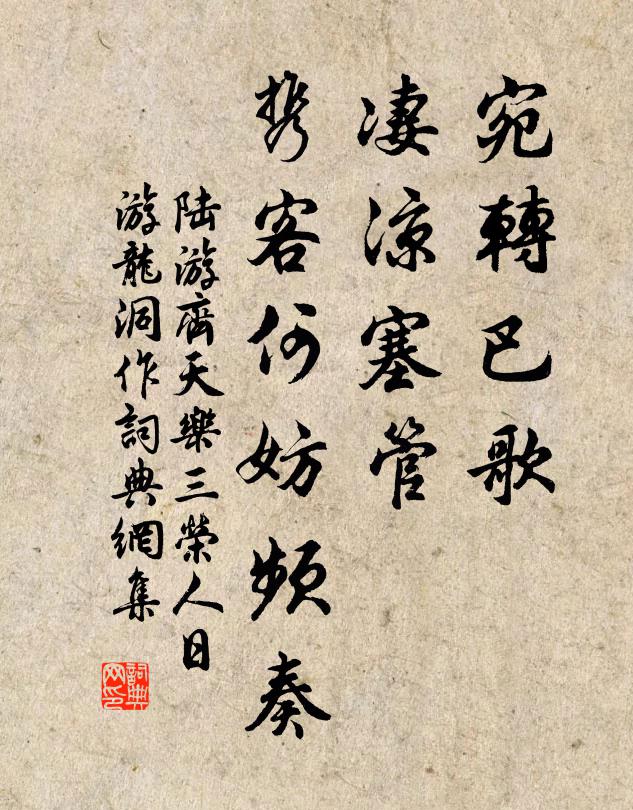 宛轉巴歌
淒涼塞管
携客何妨頻奏
陸游齊天樂三榮人日
游龍洞作詞典網集
詞典
网印